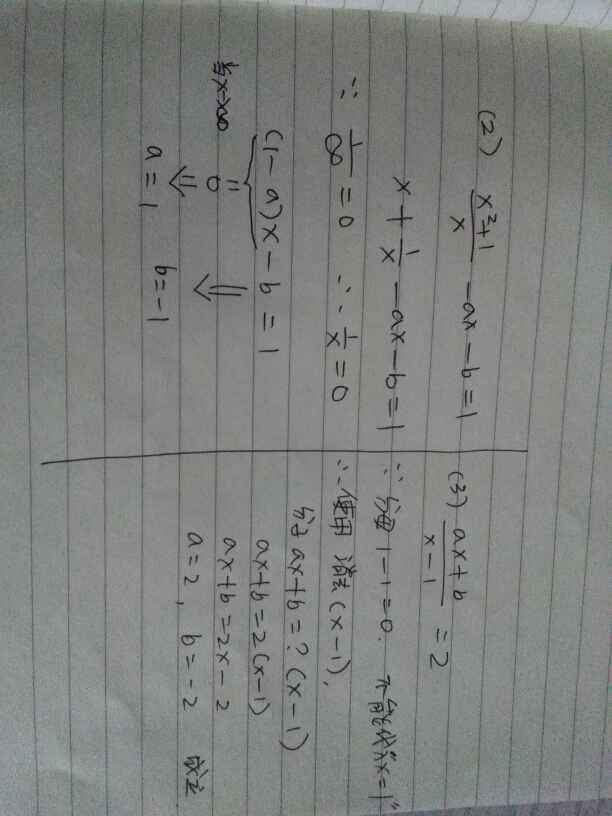 (2) \frac{x²+1}{x} - ax - b = 1
x + \frac{1}{x} - ax - b = 1
∵ \frac{1}{∞} = 0 ∴ \frac{1}{x} = 0
(1-a)x - b = 1
当x→∞ = 0 ⇓ ⇓
a = 1 b = -1
(3) \frac{ax+b}{x-1} = 2
∵ 分母 1-1=0. 不能代入"x=1"
∴ 使用 消去(x-1),
分子 ax+b = ? (x-1)
ax+b = 2(x-1)
ax+b = 2x-2
a=2, b=-2 成立